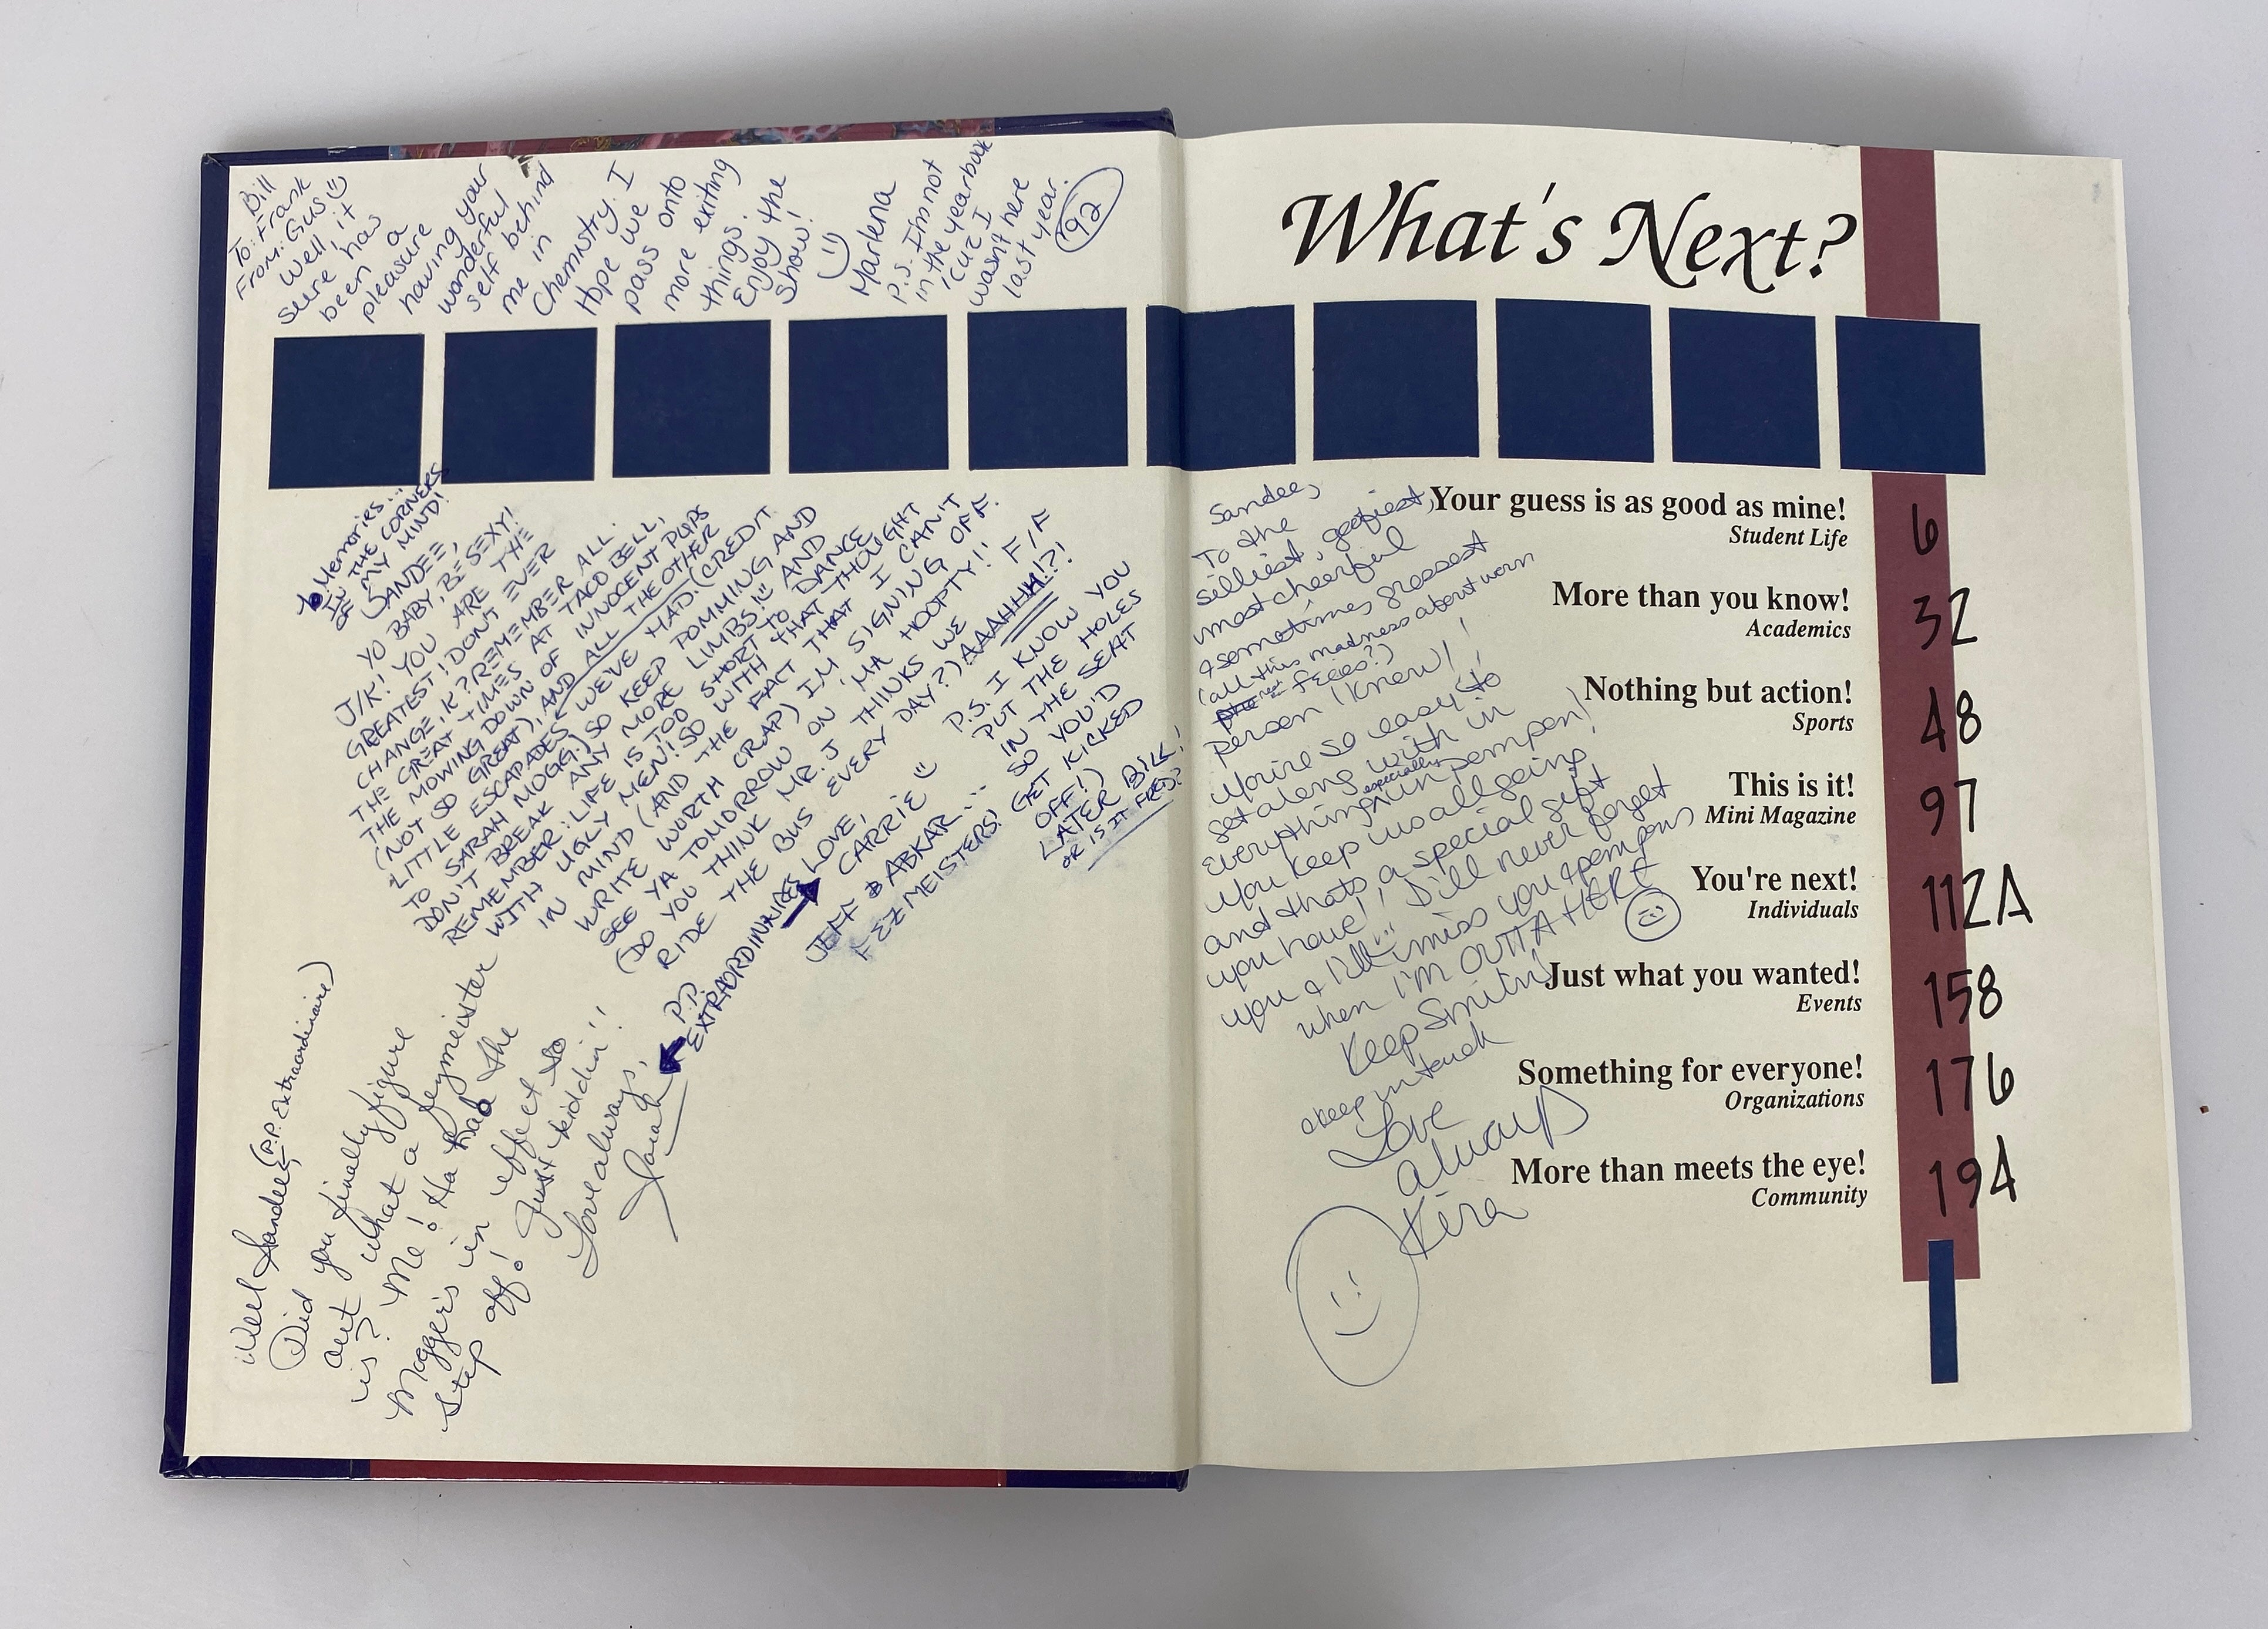 Bill
To: Frank
From: Gus
Well, it
sure has
been a
pleasure
having your
wonderful
self behind
me in
Chemistry. I
hope we
pass onto
more exiting
things.
Enjoy the
show!
Marlena
P.S. I'm not
in the yearbook
'cuz I
wasn't here
last year.
'92
To Memories...
IN THE CORNERS
OF MY MIND!
SANDEE,
YO BABY, BE SEXY!
J/K! YOU ARE THE
GREATEST! DON'T EVER
CHANGE, K? REMEMBER ALL
THE GREAT TIMES AT TACO BELL,
THE MOWING DOWN OF INNOCENT PUPS
(NOT SO GREAT), AND ALL THE OTHER
LITTLE ESCAPADES WE'VE HAD. (CREDIT
TO SARAH MOGG.) SO KEEP POMMING AND
DON'T BREAK ANY MORE LIMBS!! AND
REMEMBER: LIFE IS TOO SHORT TO DANCE
WITH UGLY MEN! SO WITH THAT THOUGHT
IN MIND (AND THE FACT THAT I CAN'T
WRITE WORTH CRAP) I'M SIGNING OFF.
SEE YA TOMORROW ON 'MA HOOPTY!!
(DO YOU THINK MR. J THINKS WE F/F
RIDE THE BUS EVERY DAY?) AAAHHH!?!
LOVE,
CARRIE
P.S. I KNOW YOU
PUT THE HOLES
IN THE SEAT
SO YOU'D
GET KICKED
OFF!)
LATER BILL!
OR IS IT FRED?
JEFF & ABKAR...
FEZMEISTERS!
P.P.
EXTRAORDINAIRES
Well Sandee, (P.P. Extraordinaire)
Did you finally figure
out what a feymeister
is? Me! Ha ha the
Mogger's in effect so
step off! Just kiddin'!!
Love always,
Sarah
What's Next?
Sandee,
To the
silliest, goofiest,
most cheerful
& sometimes grossest
(all this madness about worn
feces?)
person I know!!
You're so easy to
get along with in
everything especially in pompon!
You keep us all going
and thats a special gift
you have! I'll never forget
you & I'll miss you & pompons
when I'M OUTTA HERE
Keep Smilin'!
& keep in touch
Love
always
Kira
Your guess is as good as mine!
Student Life
6
More than you know!
Academics
32
Nothing but action!
Sports
48
This is it!
Mini Magazine
97
You're next!
Individuals
112A
Just what you wanted!
Events
158
Something for everyone!
Organizations
176
More than meets the eye!
Community
194